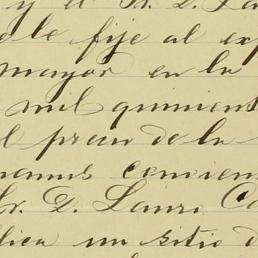 y el Sr. D.
le fije al
mayor en la
mil quinient
l precio de la
manus convien
Sr. D. Lauro Ca
lica un sitio d